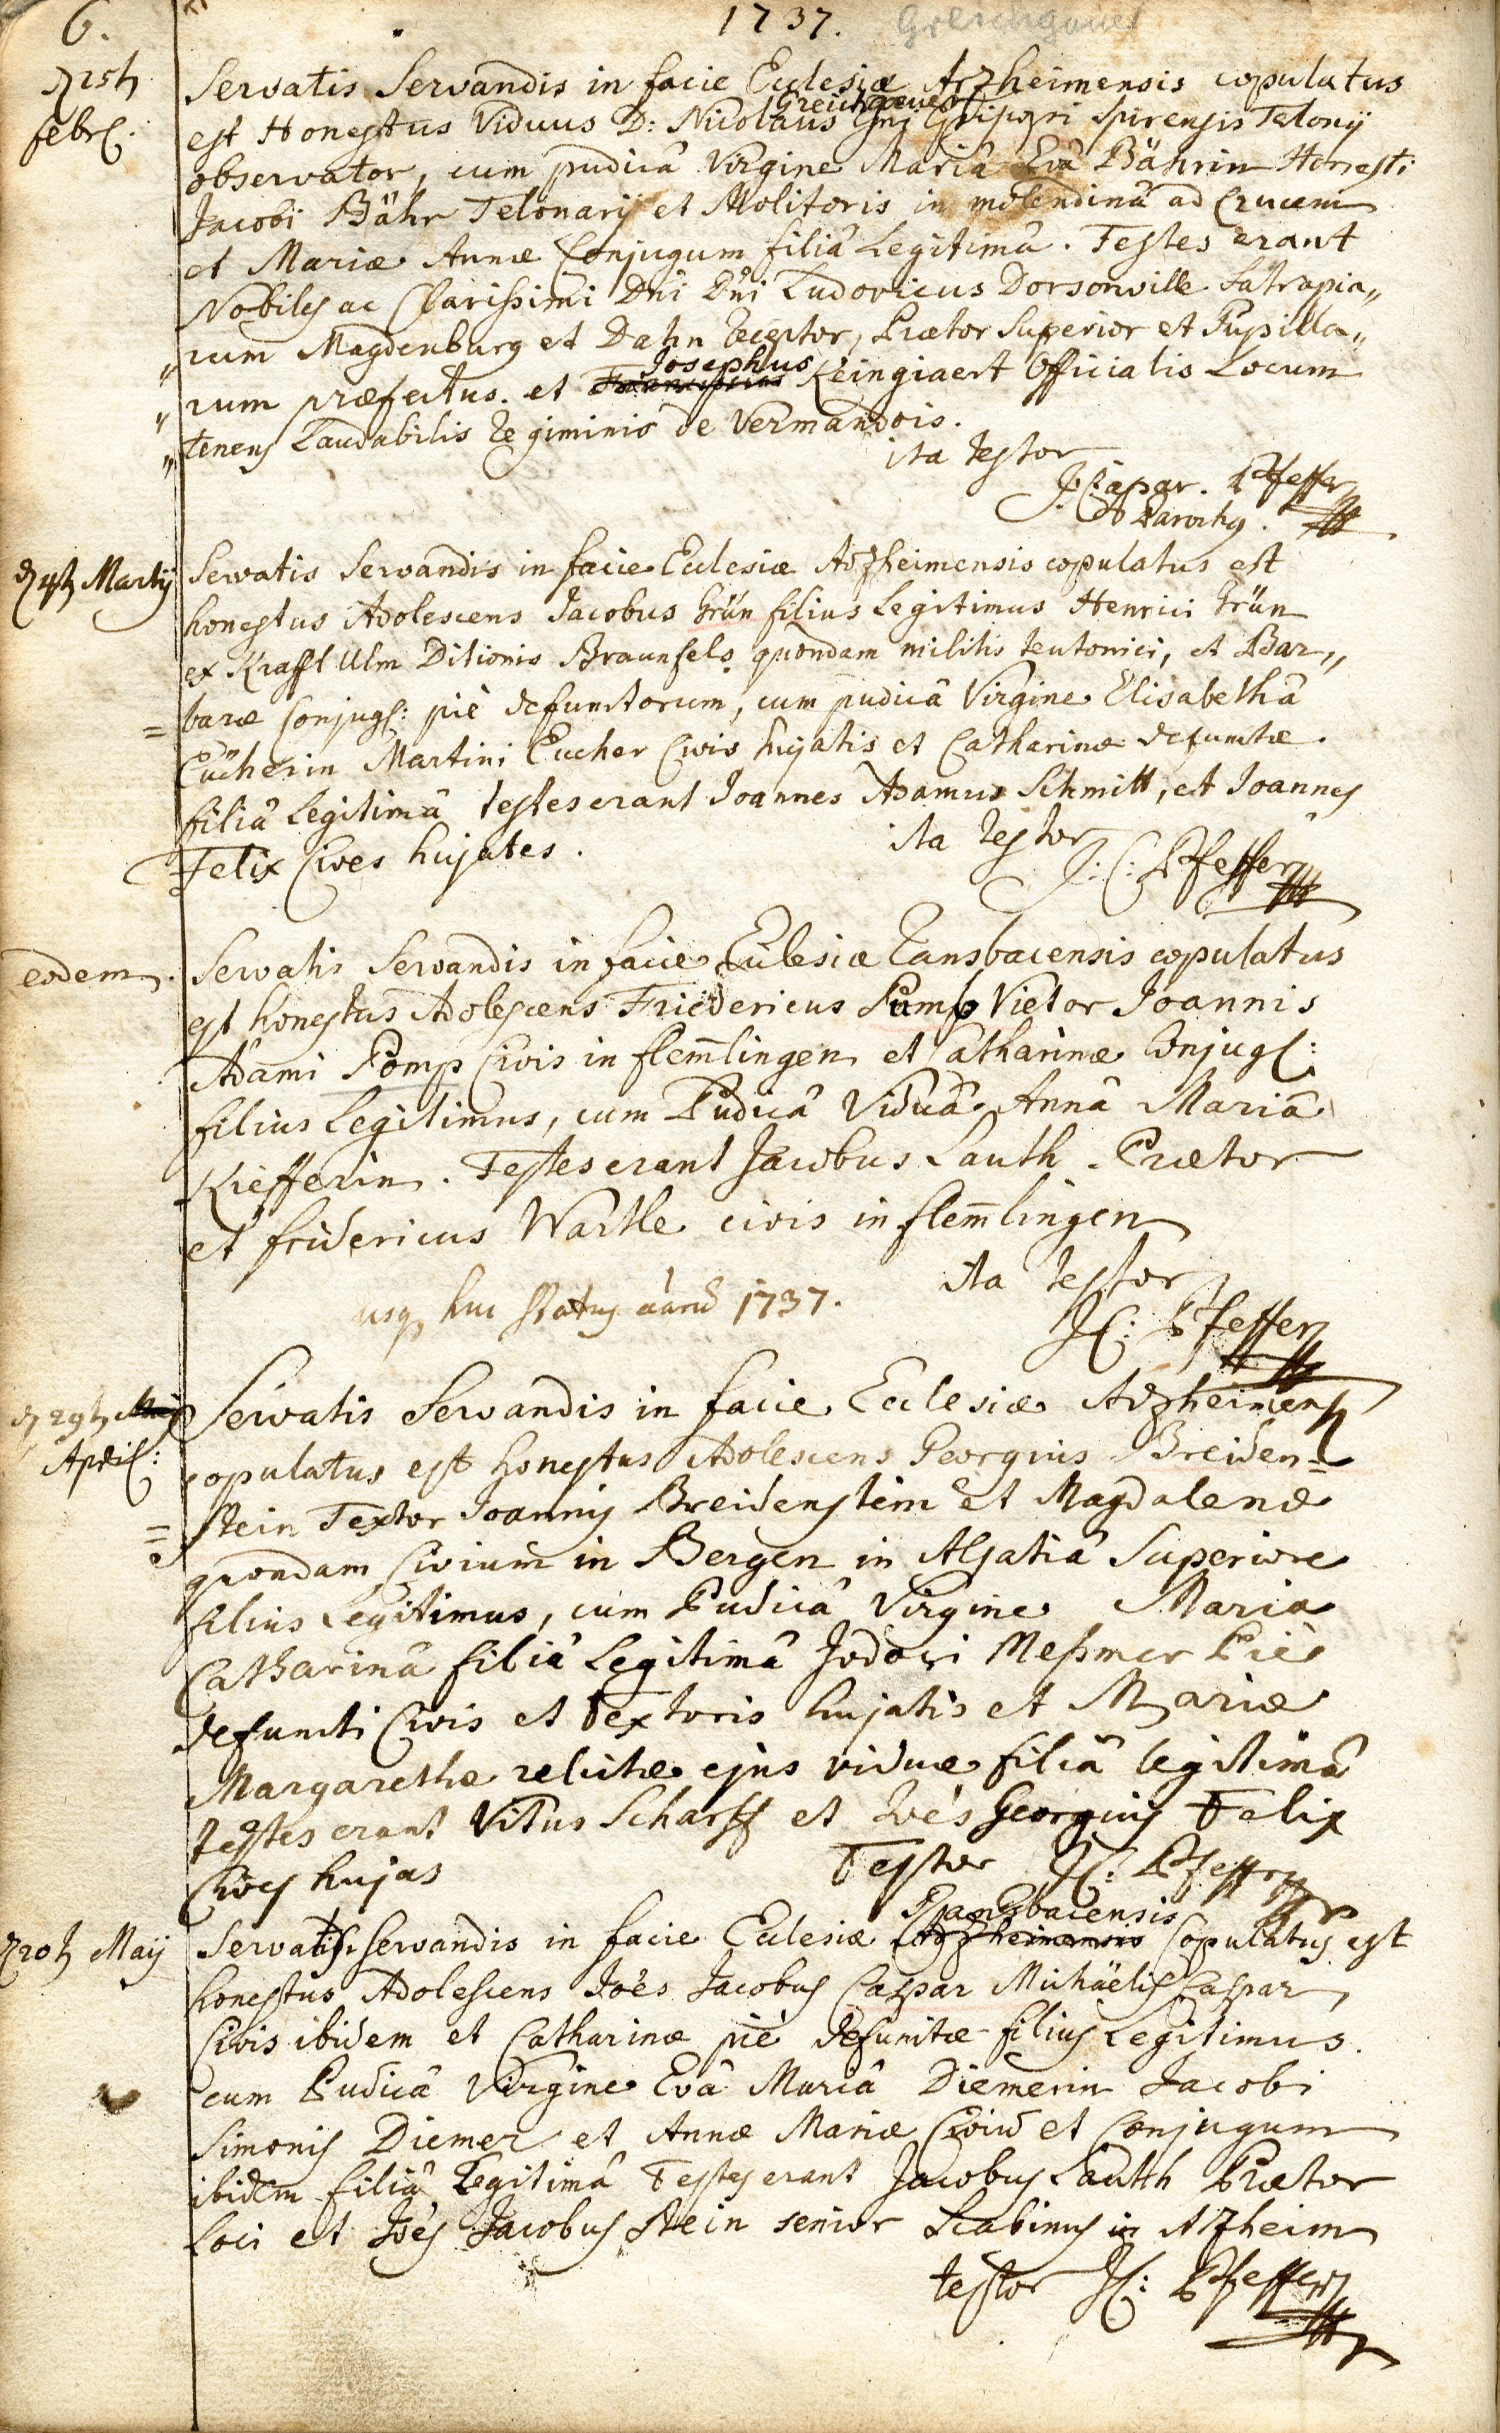 6.
1737. Greichgauer
d 25t. febr.
Servatis Servandis in facie Ecclesiæ Arzheimensis copulatus
Greichgauer
est Honestus Viduus D: Nicolaus Spirensis Telonij
observator, cum pudicâ Virgine Mariâ Evâ Bährin Honesti
Jacobi Bähr Telonarij et Molitoris in molendinâ ad Crucem
et Mariæ Annæ Conjugum filiâ Legitimâ. Testes erant
Nobiles ac Clarissimi Dni Dni Ludovicus Dorsonville Satrapia„
„rum Magdenburg et Dahn receptor, Prætor Superior et Pupilla„
Josephus
„rum præfectus. et Franciscus Keingiaert Officialis Locum
„tenens Laudabilis Regiminis de Vermandois.
ita testor
J. Caspar. Pfeffer
Parochus.
d 4t Martij
Servatis Servandis in facie Ecclesiæ Arzheimensis copulatus est
honestus Adolescens Jacobus Grün filius Legitimus Henrici Grün
ex Krafft Ulm Ditionis Braunfels quondam militis teutonici, et Bar„
=baræ Conjug: piè defunctorum, cum pudicâ Virgine Elisabethâ
Eücherin Martini Eucher Civis hujatis et Catharinæ defunctæ
filiâ Legitimâ testes erant Joannes Adamus Schmitt, et Joannes
Felix Cives hujates.
ita testor
J: C: Pfeffer
eodem.
Servatis Servandis in facie Ecclesiæ Ransbacensis copulatus
est honestus Adolescens Friedericus Pomp Vietor Joannis
Adami Pomp Civis in flem̄lingen et Catharinæ Conjug:
filius Legitimus, cum Pudicâ Viduâ Annâ Mariâ
Kiefferin. Testes erant Jacobus Lauth Prætor
et fridericus Wartle civis in flem̄lingen
ita testor
usq huc status 1737.
JC: Pfeffer
d 29t Maij
April:
Servatis Servandis in facie Ecclesiæ Arzheimens
copulatus est honestus Adolescens Georgius Breiden=
=stein Textor Joannis Breidenstein et Magdalenæ
quondam Civium in Bergen in Alsatiâ Superiore
filius Legitimus, cum Pudicâ Virgine Maria
Catharinâ filiâ Legitimâ Jodoci Meßmer Piè
defuncti Civis et textoris hujatis et Mariæ
Margarethæ relictæ ejus viduæ filiâ legitimâ
testes erant Vitus Scharff et Joēs Georgius Felix
Cives hujas
Testor JC: Pfeffer
d 20t Maij
Ransbacensis
Servatis servandis in facie Ecclesiæ Arzheimensis Copulatus est
honestus Adolescens Joēs Jacobus Caspar Michäelis Caspar
Civis ibidem et Catharinæ piè defunctæ filius Legitimus
cum Pudicâ Virgine Evâ Mariâ Diemerin Jacobi
Simonis Diemer et Annæ Mariæ Civiū et Conjugum
ibidem filiâ Legitimâ Testes erant Jacobus Lauth Prætor
Loci et Joēs Jacobus Stein senior Scabinus in Arzheim
testor JC: Pfeffer